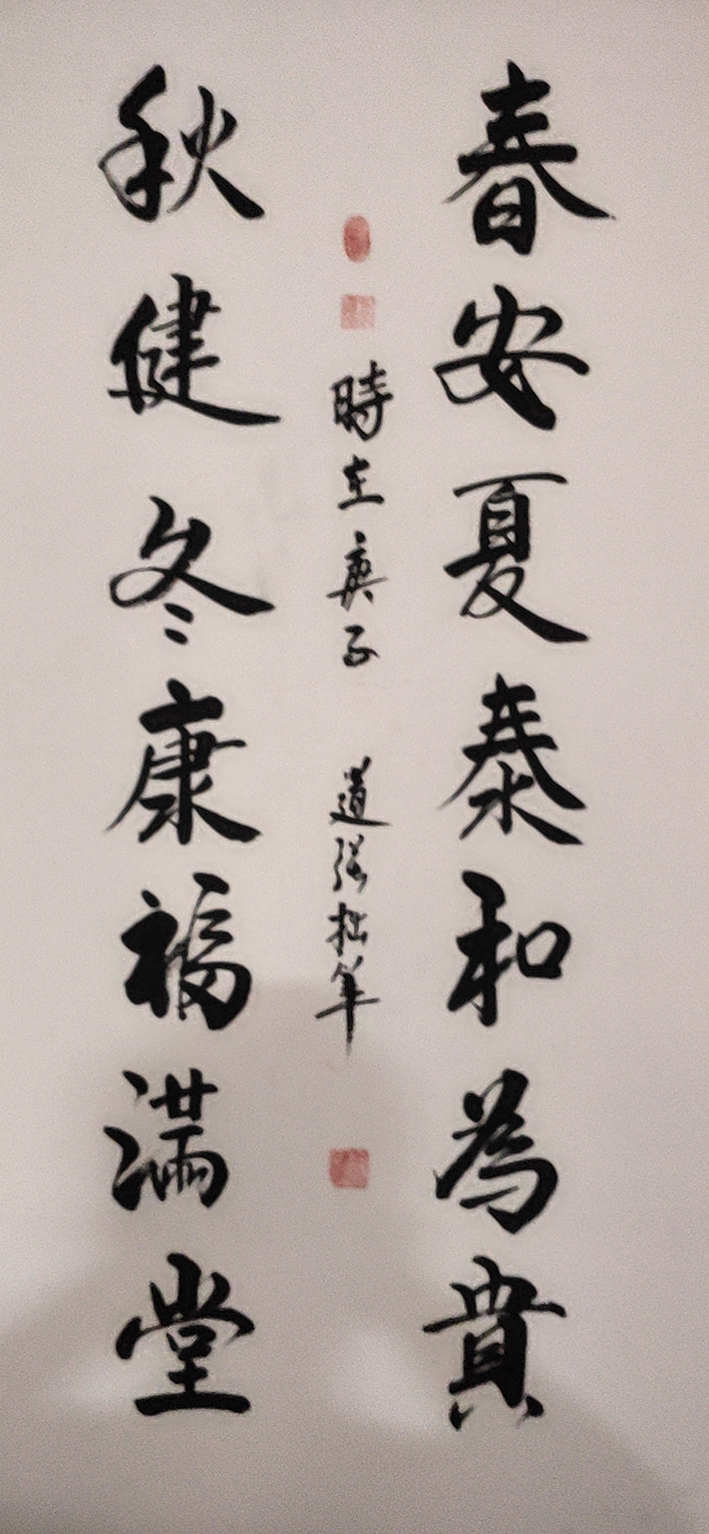 春安夏泰和為貴
時在庚子 道強拙筆
秋健冬康福満堂